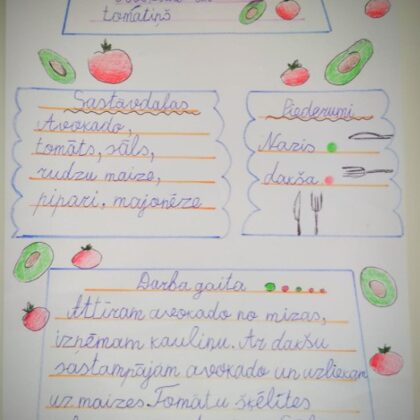 tomātiņš
Sastāvdaļas
Avokado,
tomāts, sāls,
rudzu maize,
pipari, majonēze
Piederumi
Nazis
dakša
Darba gaita
Attīram avokado no mizas,
izņēmam kauliņu. Ar dakšu
sastampājam avokado un uzliekam
uz maizes. Tomātu šķēlītes